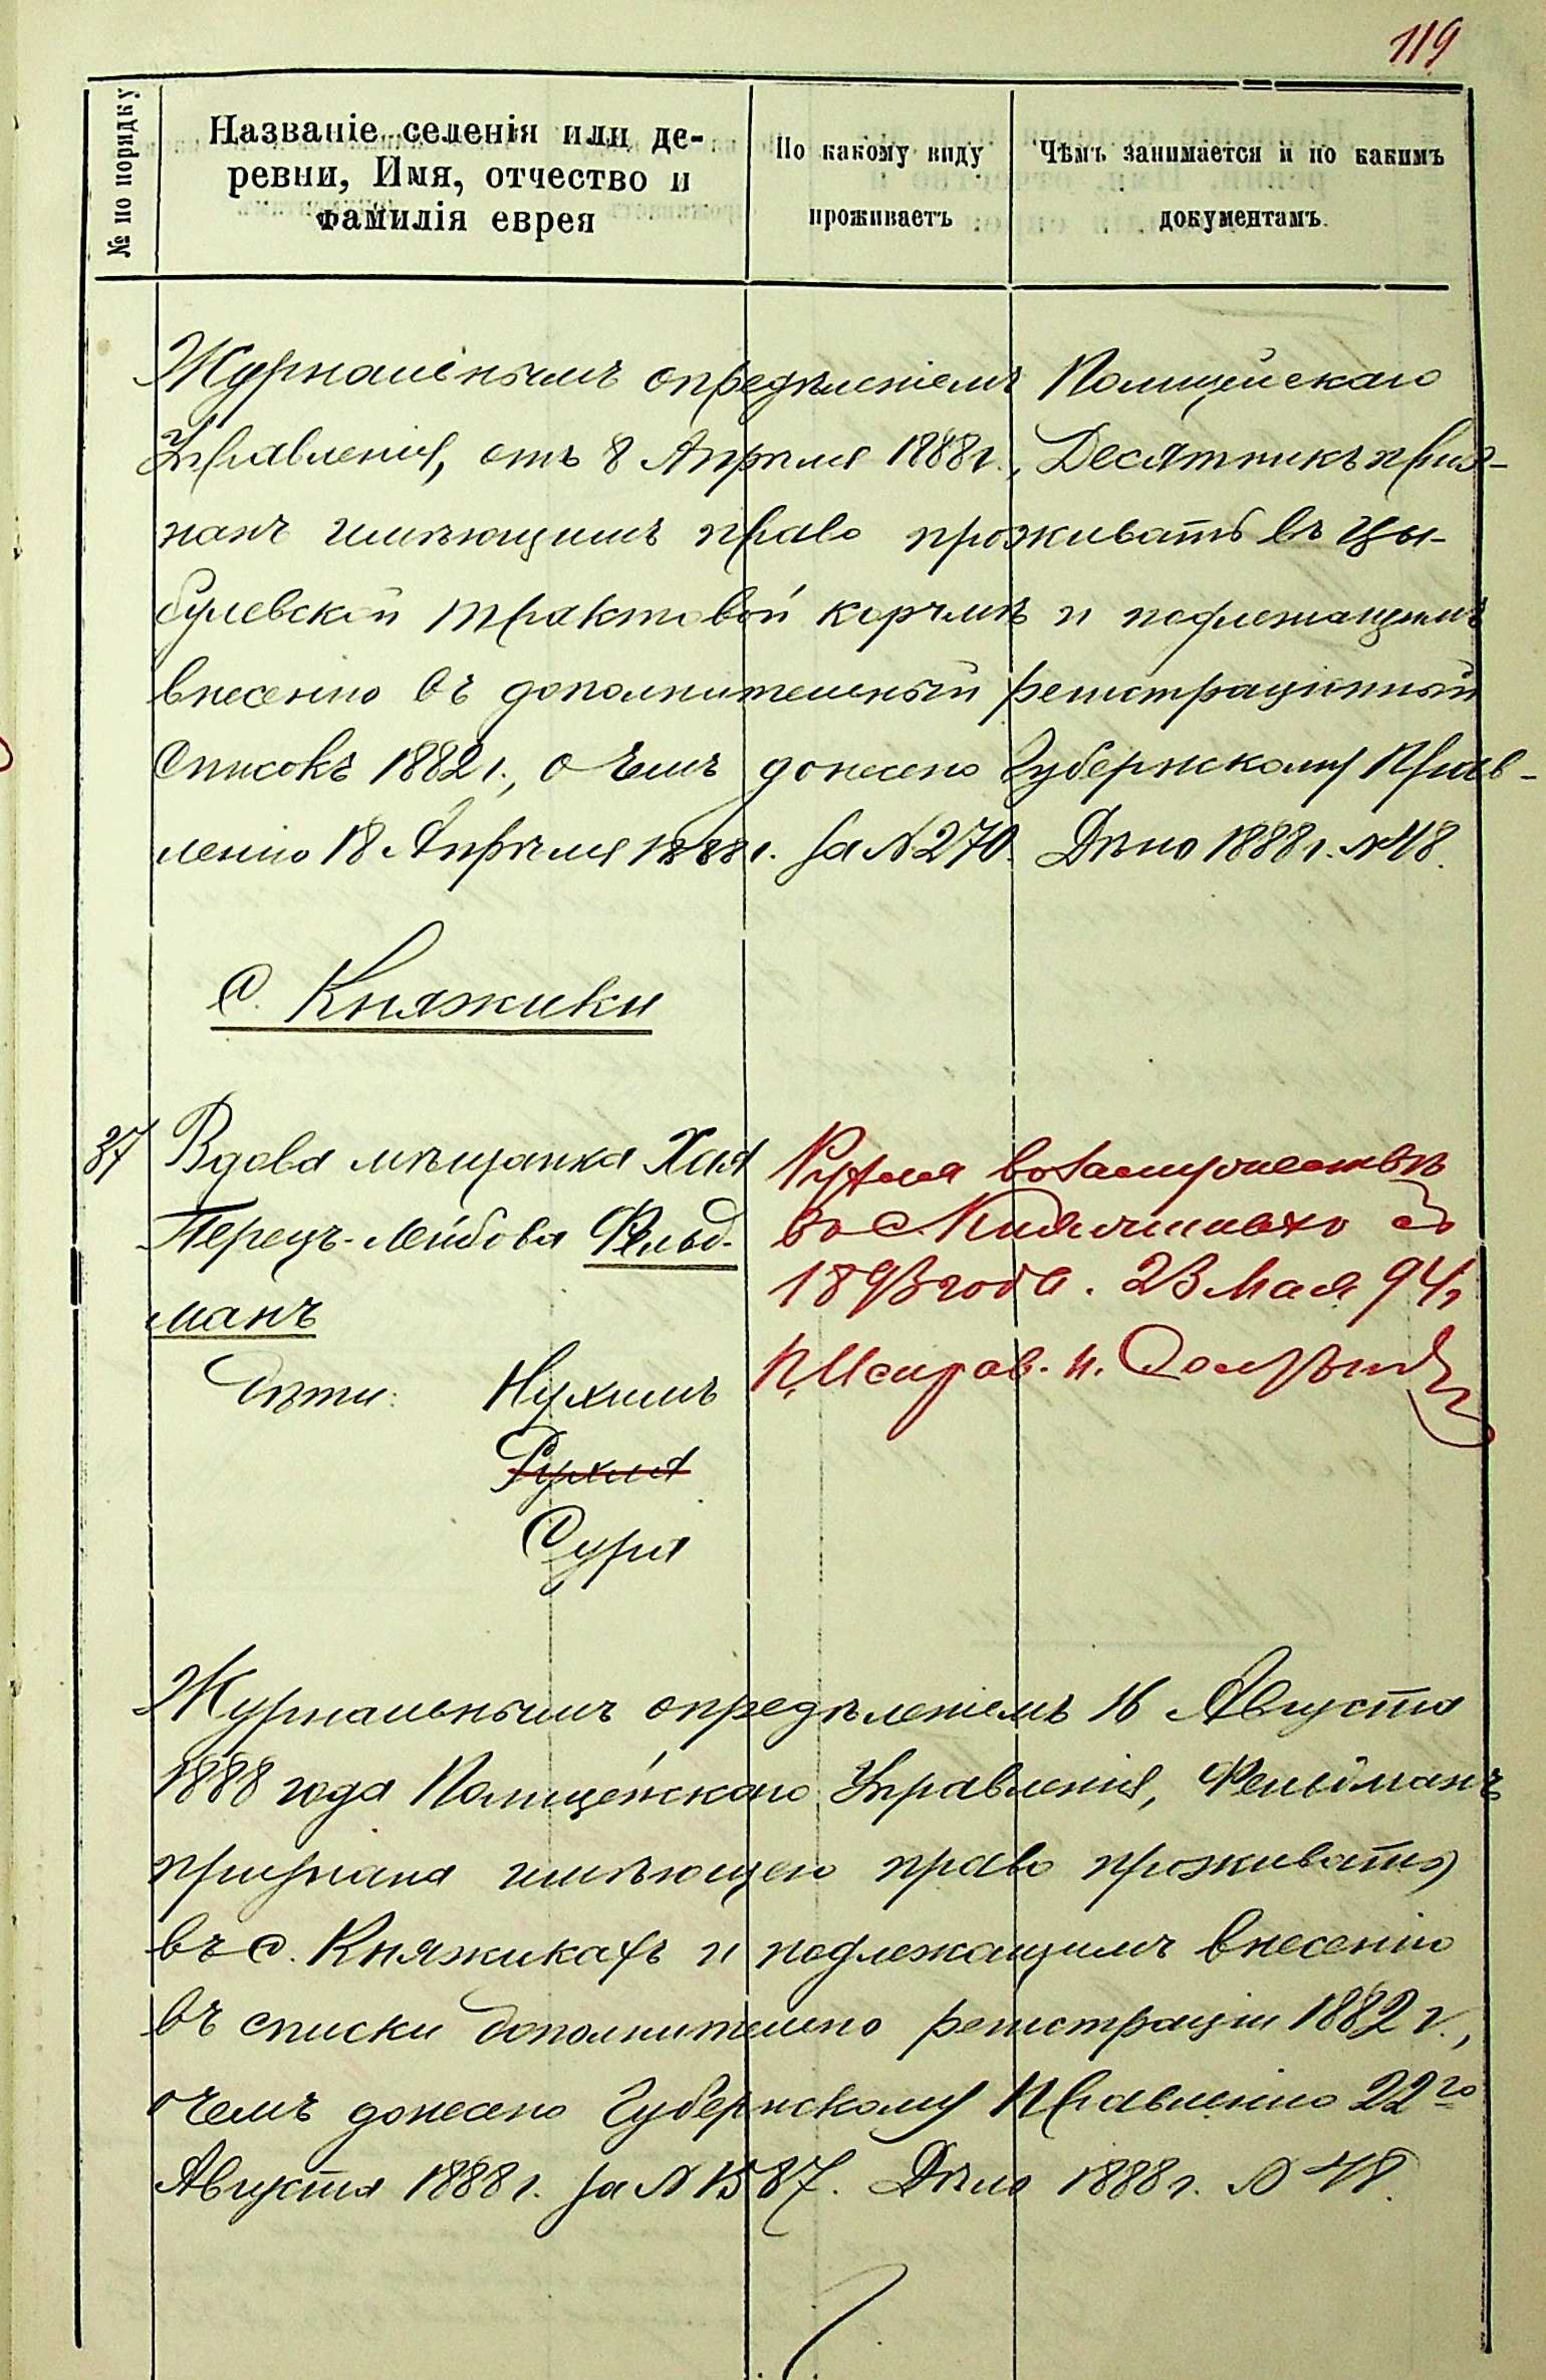 119
№ по порядку
Названіе селенія или де-
ревни, Имя, отчество и
фамилія еврея
По какому виду
проживаетъ
Чѣмъ занимается и по какимъ
документамъ.
Журнальнымъ опредѣленіемъ Полицейскаго
Управленія, отъ 8 Апрѣля 1888 г., Десятникъ приз-
нанъ имѣющимъ право проживать въ Цы-
булевской трактовой корчмѣ и подлежащимъ
внесенію въ дополнительный регистраціонный
списокъ 1882 г., о чемъ донесено Губернскому Прав-
ленію 18 Апрѣля 1888 г. за № 270. Дѣло 1888 г. № 48.
С. Княжики
37
Вдова мѣщанка Хая
Перецъ-Лейбова Фельд-
манъ
Дѣти: Нухимъ
Рухля
Сура
Рухля въ замужествѣ
въ с. съ
1893 года. 23 Мая 94 г.
П. Исправ. н.
Журнальнымъ опредѣленіемъ 16 Августа
1888 года Полицейскаго Управленія, Фельдманъ
признана имѣющею право проживать
въ с. Княжикахъ и подлежащимъ внесенію
въ списки дополнительно регистраціи 1882 г.,
о чемъ донесено Губернскому Правленію 22го
Августа 1888 г. за № 1587. Дѣло 1888 г. № 48.